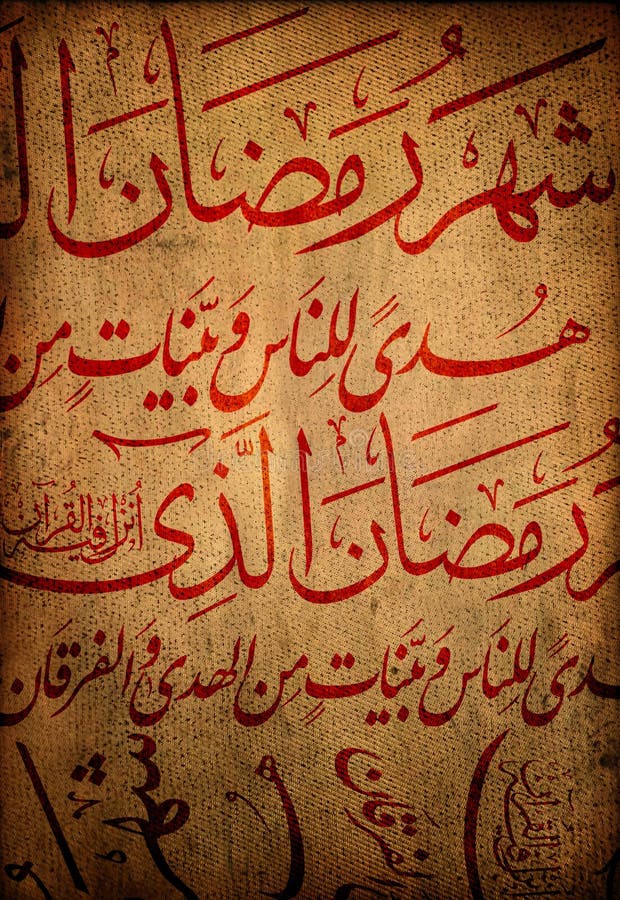 شهر رمضان ال
هُدىً لِلنَاس وَبَيّنَاتٍ مِن
رُ رمضان الَّذي أُنزل فيه القُرآن
دىً لِلنَاس وَبَيّنَاتٍ مِن الهدى وَالفرقَان
الفرقان